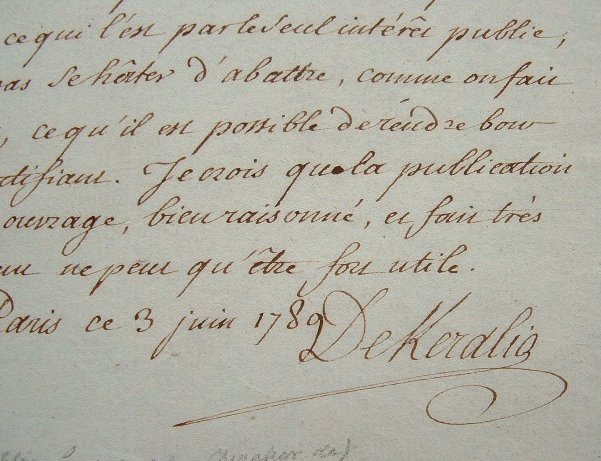 ce qui l'est par le seul intérêt public,
pas se hâter d'abattre, comme on fait
, ce qu'il est possible de rendre bon
rtifiant. Je crois que la publication
ouvrage, bien raisonné, et fait très
ne peut qu'être fort utile.
Paris ce 3 juin 1789
De Keralio